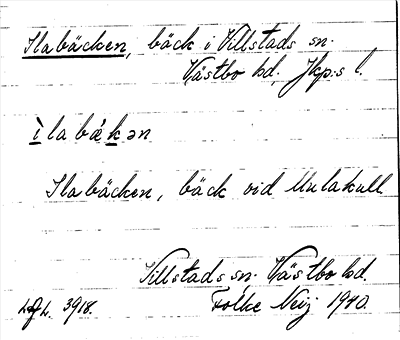 Ilabäcken, bäck i Villstads sn.
Västbo hd, Jkp:s l.
ìlabákən
Ilabäcken, bäck vid Mulakull
Villstads sn. Västbo hd.
3918. Folke Neij 1940.